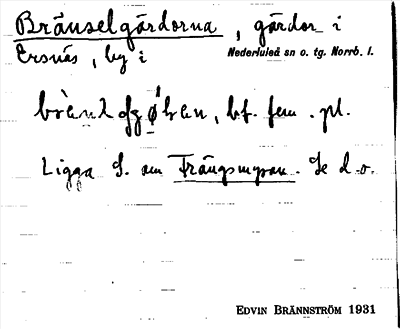 Bränselgärdorna, gärdor i
Ersnäs, by i Nederluleå sn o. tg. Norrb. l.
bf. fem. pl.
Ligga S. om Trångsmyran. Se d.o.
EDVIN BRÄNNSTRÖM 1931